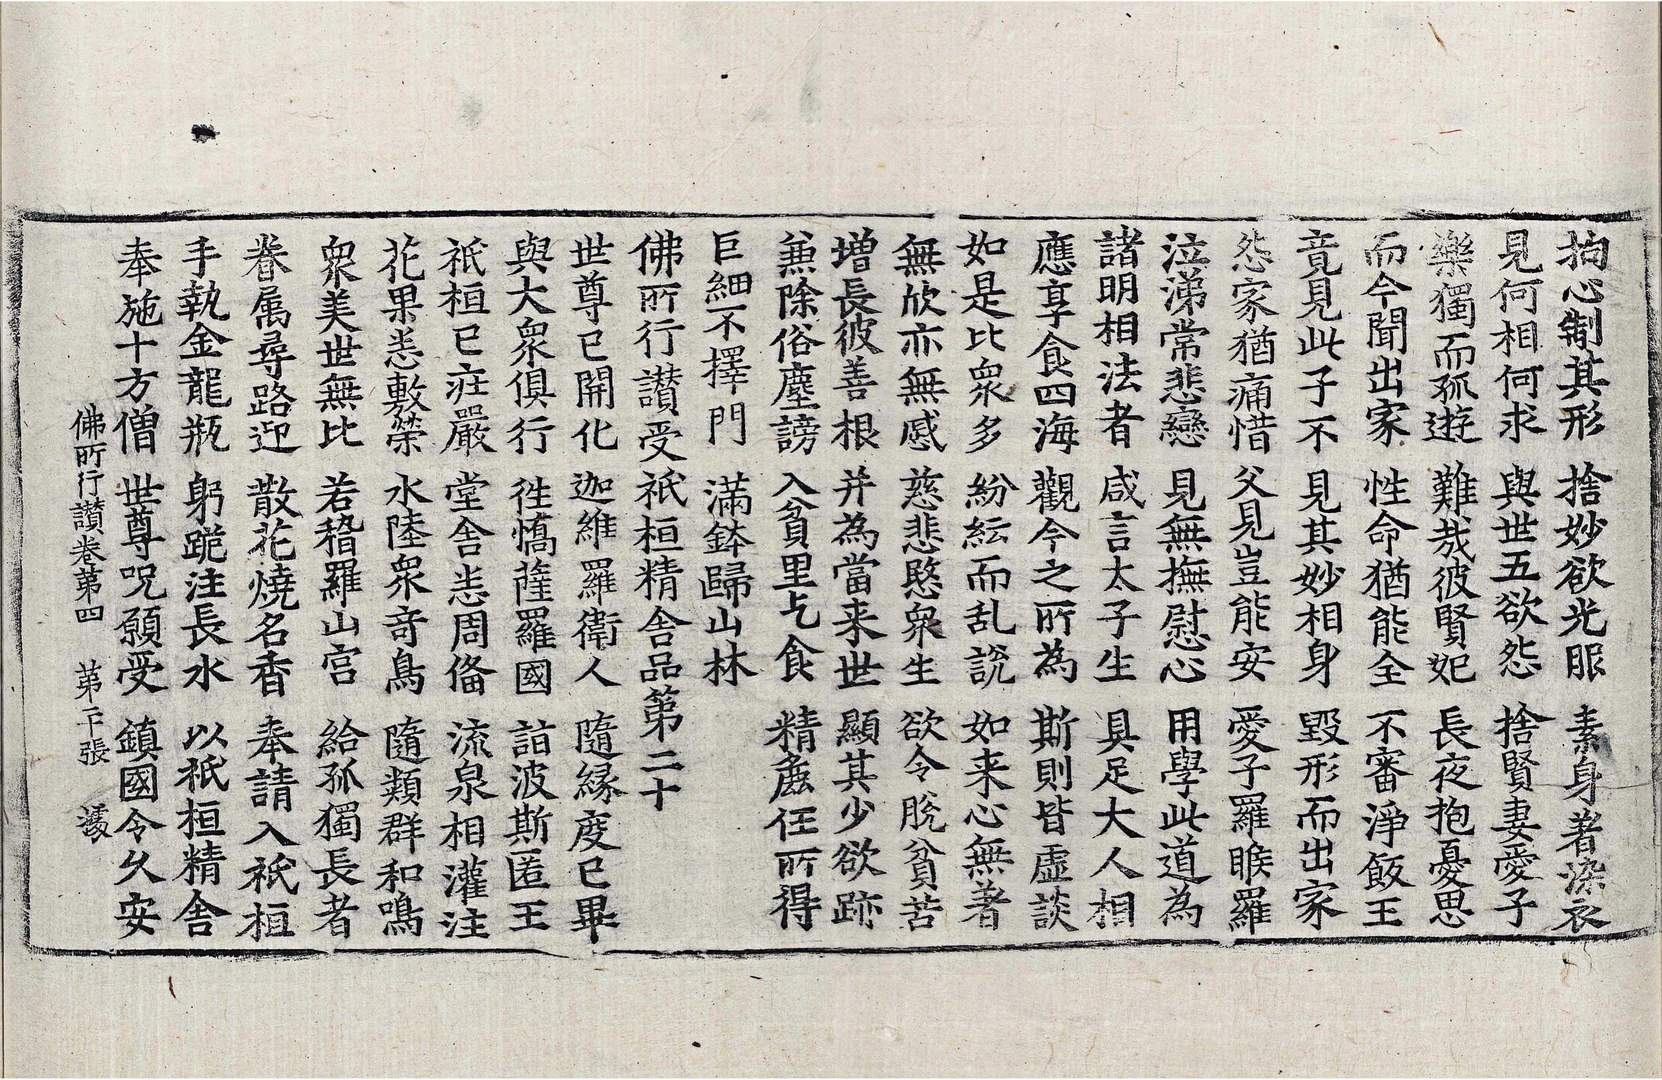 拘心制其形 捨妙欲光服 素身著染衣
見何相何求 與世五欲怨 捨賢妻愛子
樂獨而孤遊 難哉彼賢妃 長夜抱憂思
而今聞出家 性命猶能全 不審淨飯王
竟見此子不 見其妙相身 毀形而出家
怨家猶痛惜 父見豈能安 愛子羅睺羅
泣涕常悲戀 見無撫慰心 用學此道為
諸明相法者 咸言太子生 具足大人相
應享食四海 觀今之所為 斯則皆虛談
如是比衆多 紛紜而乱說 如来心無著
無欣亦無慼 慈悲愍衆生 欲令脫貧苦
增長彼善根 并為當来世 顯其少欲跡
兼除俗塵謗 入貧里乞食 精麁任所得
巨細不擇門 滿鉢歸山林
佛所行讃受祇桓精舎品第二十
世尊已開化 迦維羅衛人 隨縁度已畢
與大衆俱行 徃憍薩羅國 詣波斯匿王
祇桓已莊嚴 堂舎悉周俻 流泉相灌注
花果悉敷榮 水陸衆竒鳥 隨類群和鳴
衆美世無比 若稽羅山宮 給孤獨長者
眷属尋路迎 散花燒名香 奉請入祇桓
手執金龍瓶 躬跪注長水 以祇桓精舎
奉施十方僧 世尊呪願受 鎮國令久安
佛所行讃卷第四 第二十張